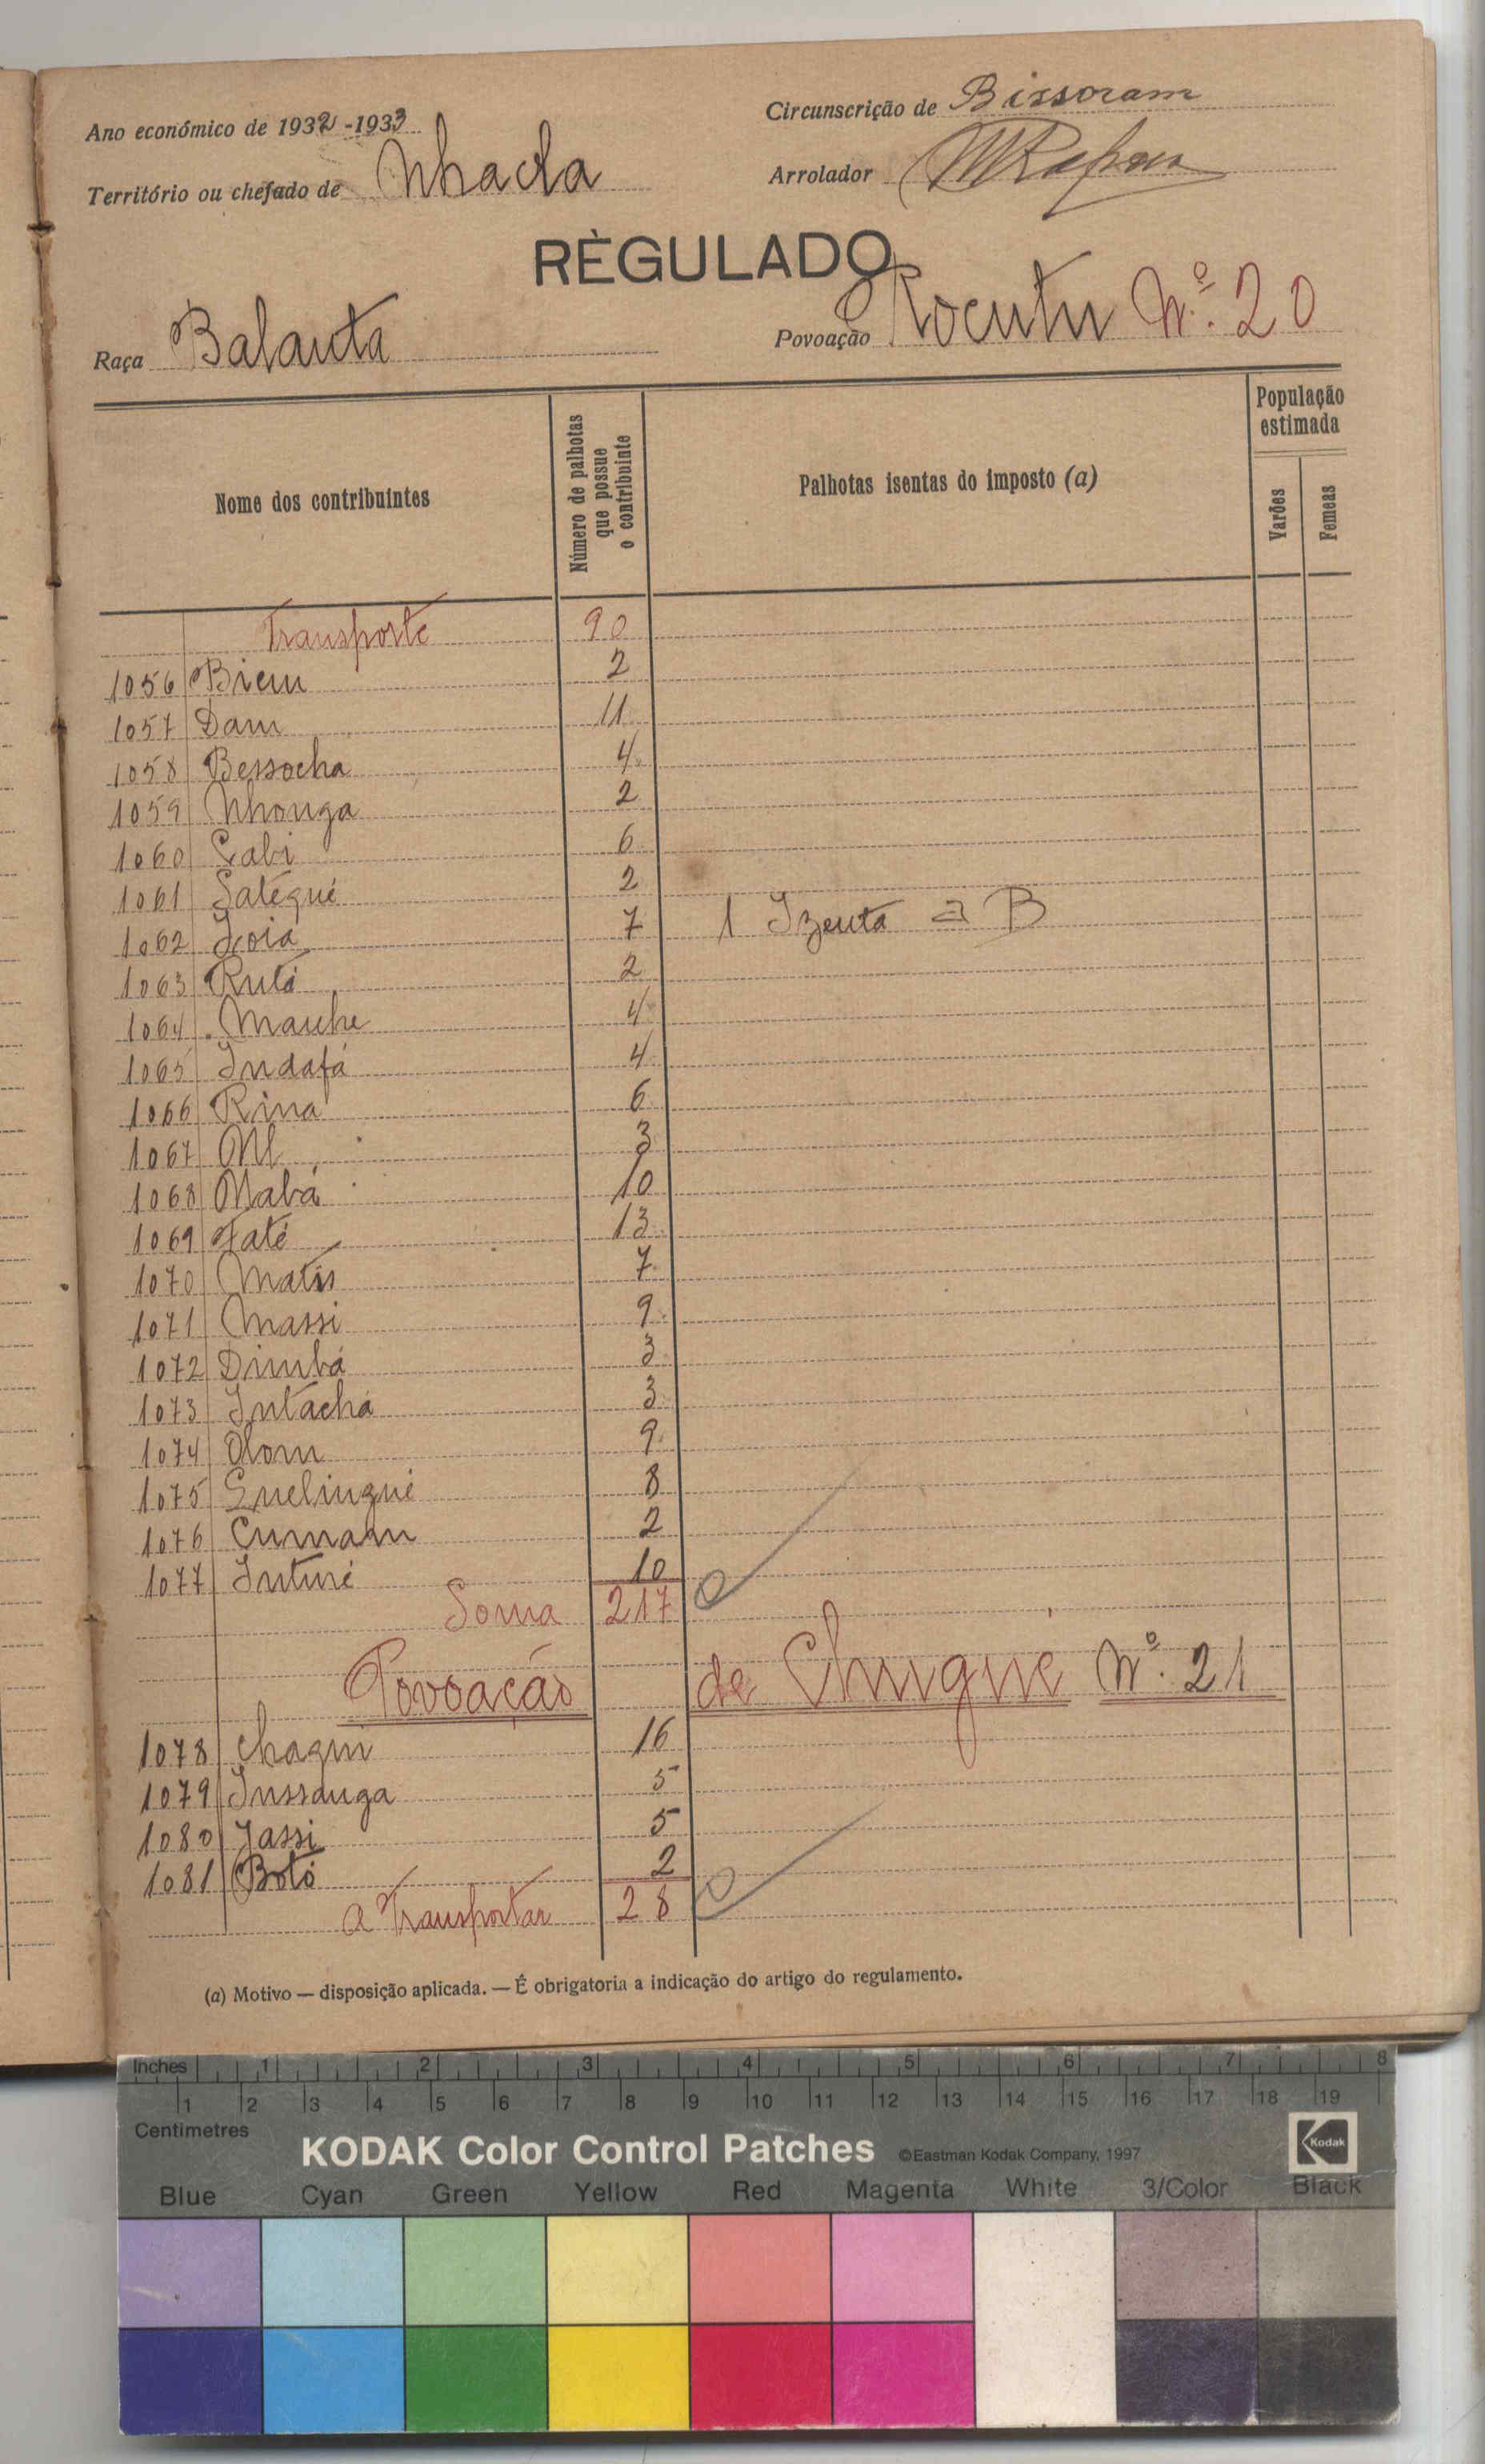 Ano económico de 1932-1933
Circunscrição de Bissoram
Território ou chefado de Nhacla
Arrolador
RÈGULADO
Raça Balanta
Povoação Rocutu Nº. 20
Nome dos contribuintes
Número de palhotas que possue o contribuinte
Palhotas isentas do imposto (a)
População estimada
Varões
Femeas
Transporte 90
1056 Biem 2
1057 Dam 11
1058 Bessocha 4
1059 Nhonga 2
1060 Çabi 6
1061 Satégué 2
1062 7 1 Izenta a B
1063 Rutá 2
1064 Manhe 4
1065 Indafá 4
1066 Rina 6
1067 3
1068 Mabá 10
1069 Faté 13
1070 Matis 7
1071 Massi 9
1072 Dimbá 3
1073 Intacha 3
1074 Olom 9
1075 8
1076 Cumam 2
1077 Inturé 10
Soma 217
Povoação de Chugué Nº. 21
1078 Chagm 16
1079 Inssanga 5
1080 Jassi 5
1081 Botó 2
A Transportar 28
(a) Motivo — disposição aplicada. — É obrigatoria a indicação do artigo do regulamento.
Inches 1 2 3 4 5 6 7 8
1 2 3 4 5 6 7 8 9 10 11 12 13 14 15 16 17 18 19
Centimetres
KODAK Color Control Patches ©Eastman Kodak Company, 1997 Kodak
Blue Cyan Green Yellow Red Magenta White 3/Color Black